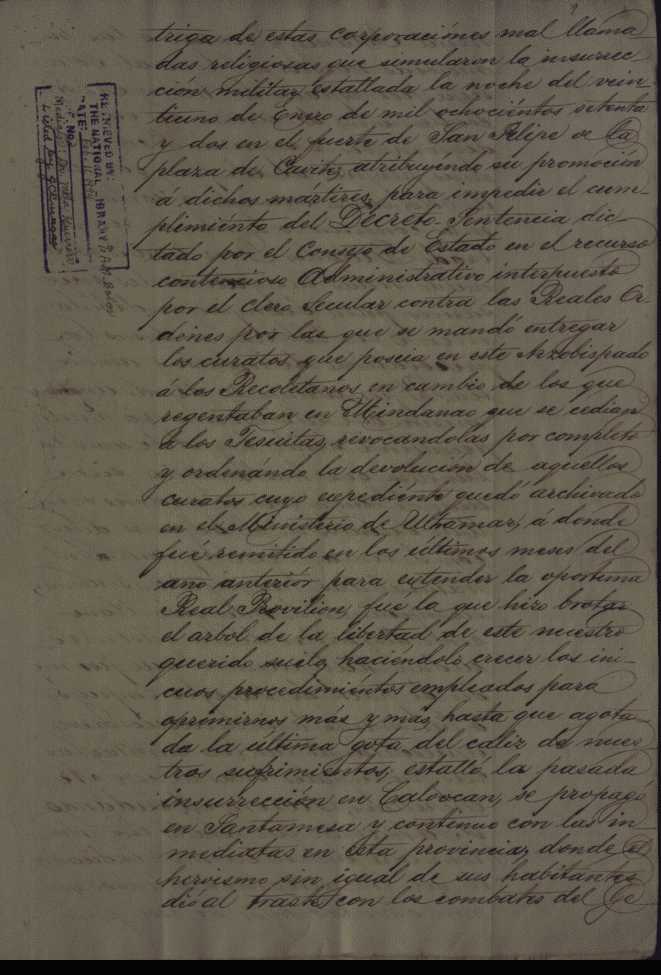 triga de estas corporaciónes mal llama
das religiosas que simularon la insurrec-
ción militar estallada la noche del vein-
tiuno de Enero de mil ochociéntos setenta
y dos en el fuerte de San Felipe de la
plaza de Cavite, atribuyéndo su promoción
á dichos mártires, para impedir el cum-
plimiénto del Decreto-Sentencia dic-
tado por el Consejo de Estado en el recurso
contencioso Administrativo interpuesto
por el clero Secular contra las Reales Or-
denes por las que se mandó entregar
los curatos que poseia en este Arzobispado
á los Recoletanos en cambio de los que
regentaban en Mindanao que se cedian
a los Jesuitas, revocandolas por completo
y ordenándo la devolución de aquellos
curatos cuyo expediénte quedó archivado
en el Ministerio de Ultramar, á donde
fué remitido en los últimos meses del
ano anteriór para extender la oportuna
Real Provision, fue la que hizo brotar
el arbol de la libertad de este nuestro
querido suelo, haciéndolo crecer los ini-
cuos procedimiéntos empleados para
oprimirnos más y más, hasta que agota
da la última gota del caliz de nues
tros sufrimientos, estalló la pasada
insurrección en Caloocan, se propagó
en Santamesa y continuo con las in
mediatas en esta provincia, donde el
heroismo sin igual de sus habitantes
dió al traste con los combates del Ge
RETRIEVED BY:
THE NATIONAL LIBRARY
DATE